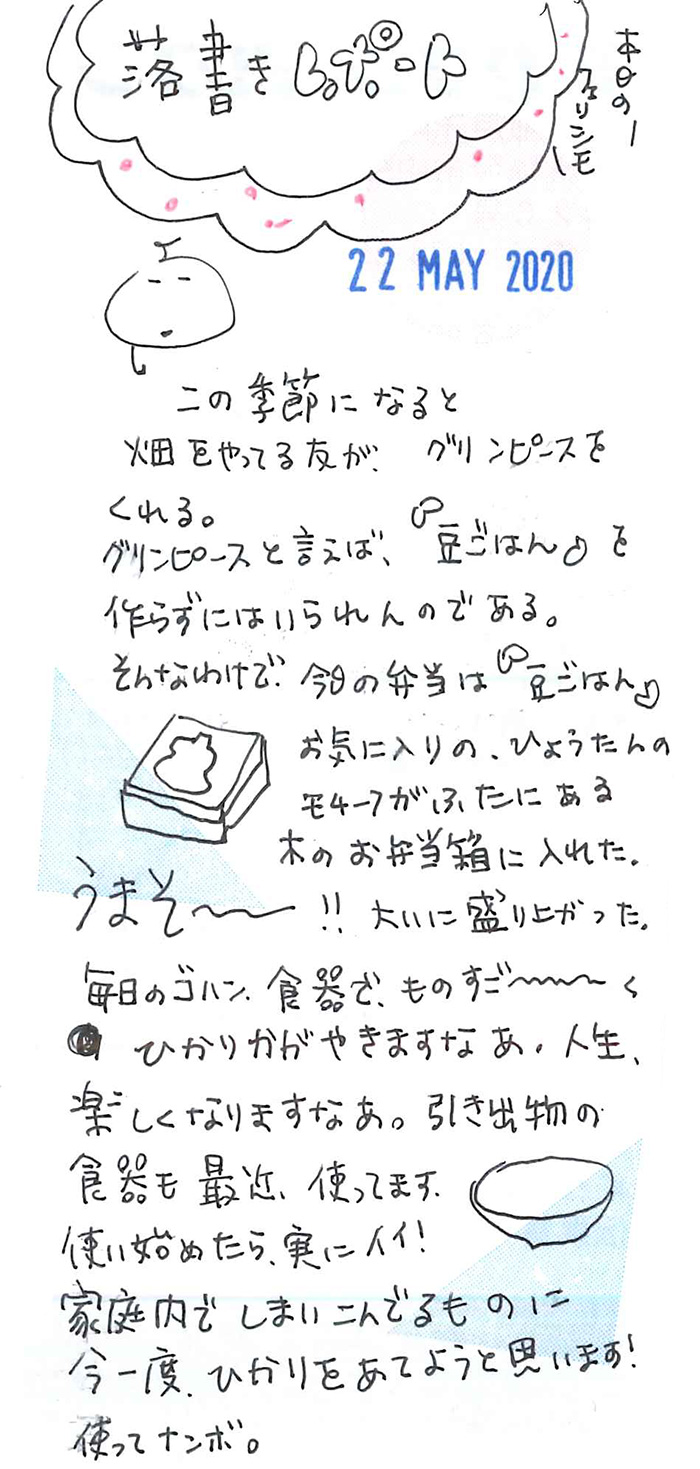 本日のー
フェリシモ
落書きレポート
22 MAY 2020
この季節になると
畑をやってる友が、グリンピースを
くれる。
グリンピースと言えば、「豆ごはん」を
作らずにはいられんのである。
そんなわけで、今日の弁当は「豆ごはん」
お気に入りの、ひょうたんの
モチーフがふたにある
木のお弁当箱に入れた。
うまそ〜〜!! 大いに盛り上がった。
毎日のゴハン、食器で、ものすご〜〜〜く
ひかりかがやきますなあ。人生、
楽しくなりますなあ。引き出物の
食器も最近、使ってます。
使い始めたら、実にイイ!
家庭内でしまいこんでるものに
今一度、ひかりをあてようと思います!
使ってナンボ。